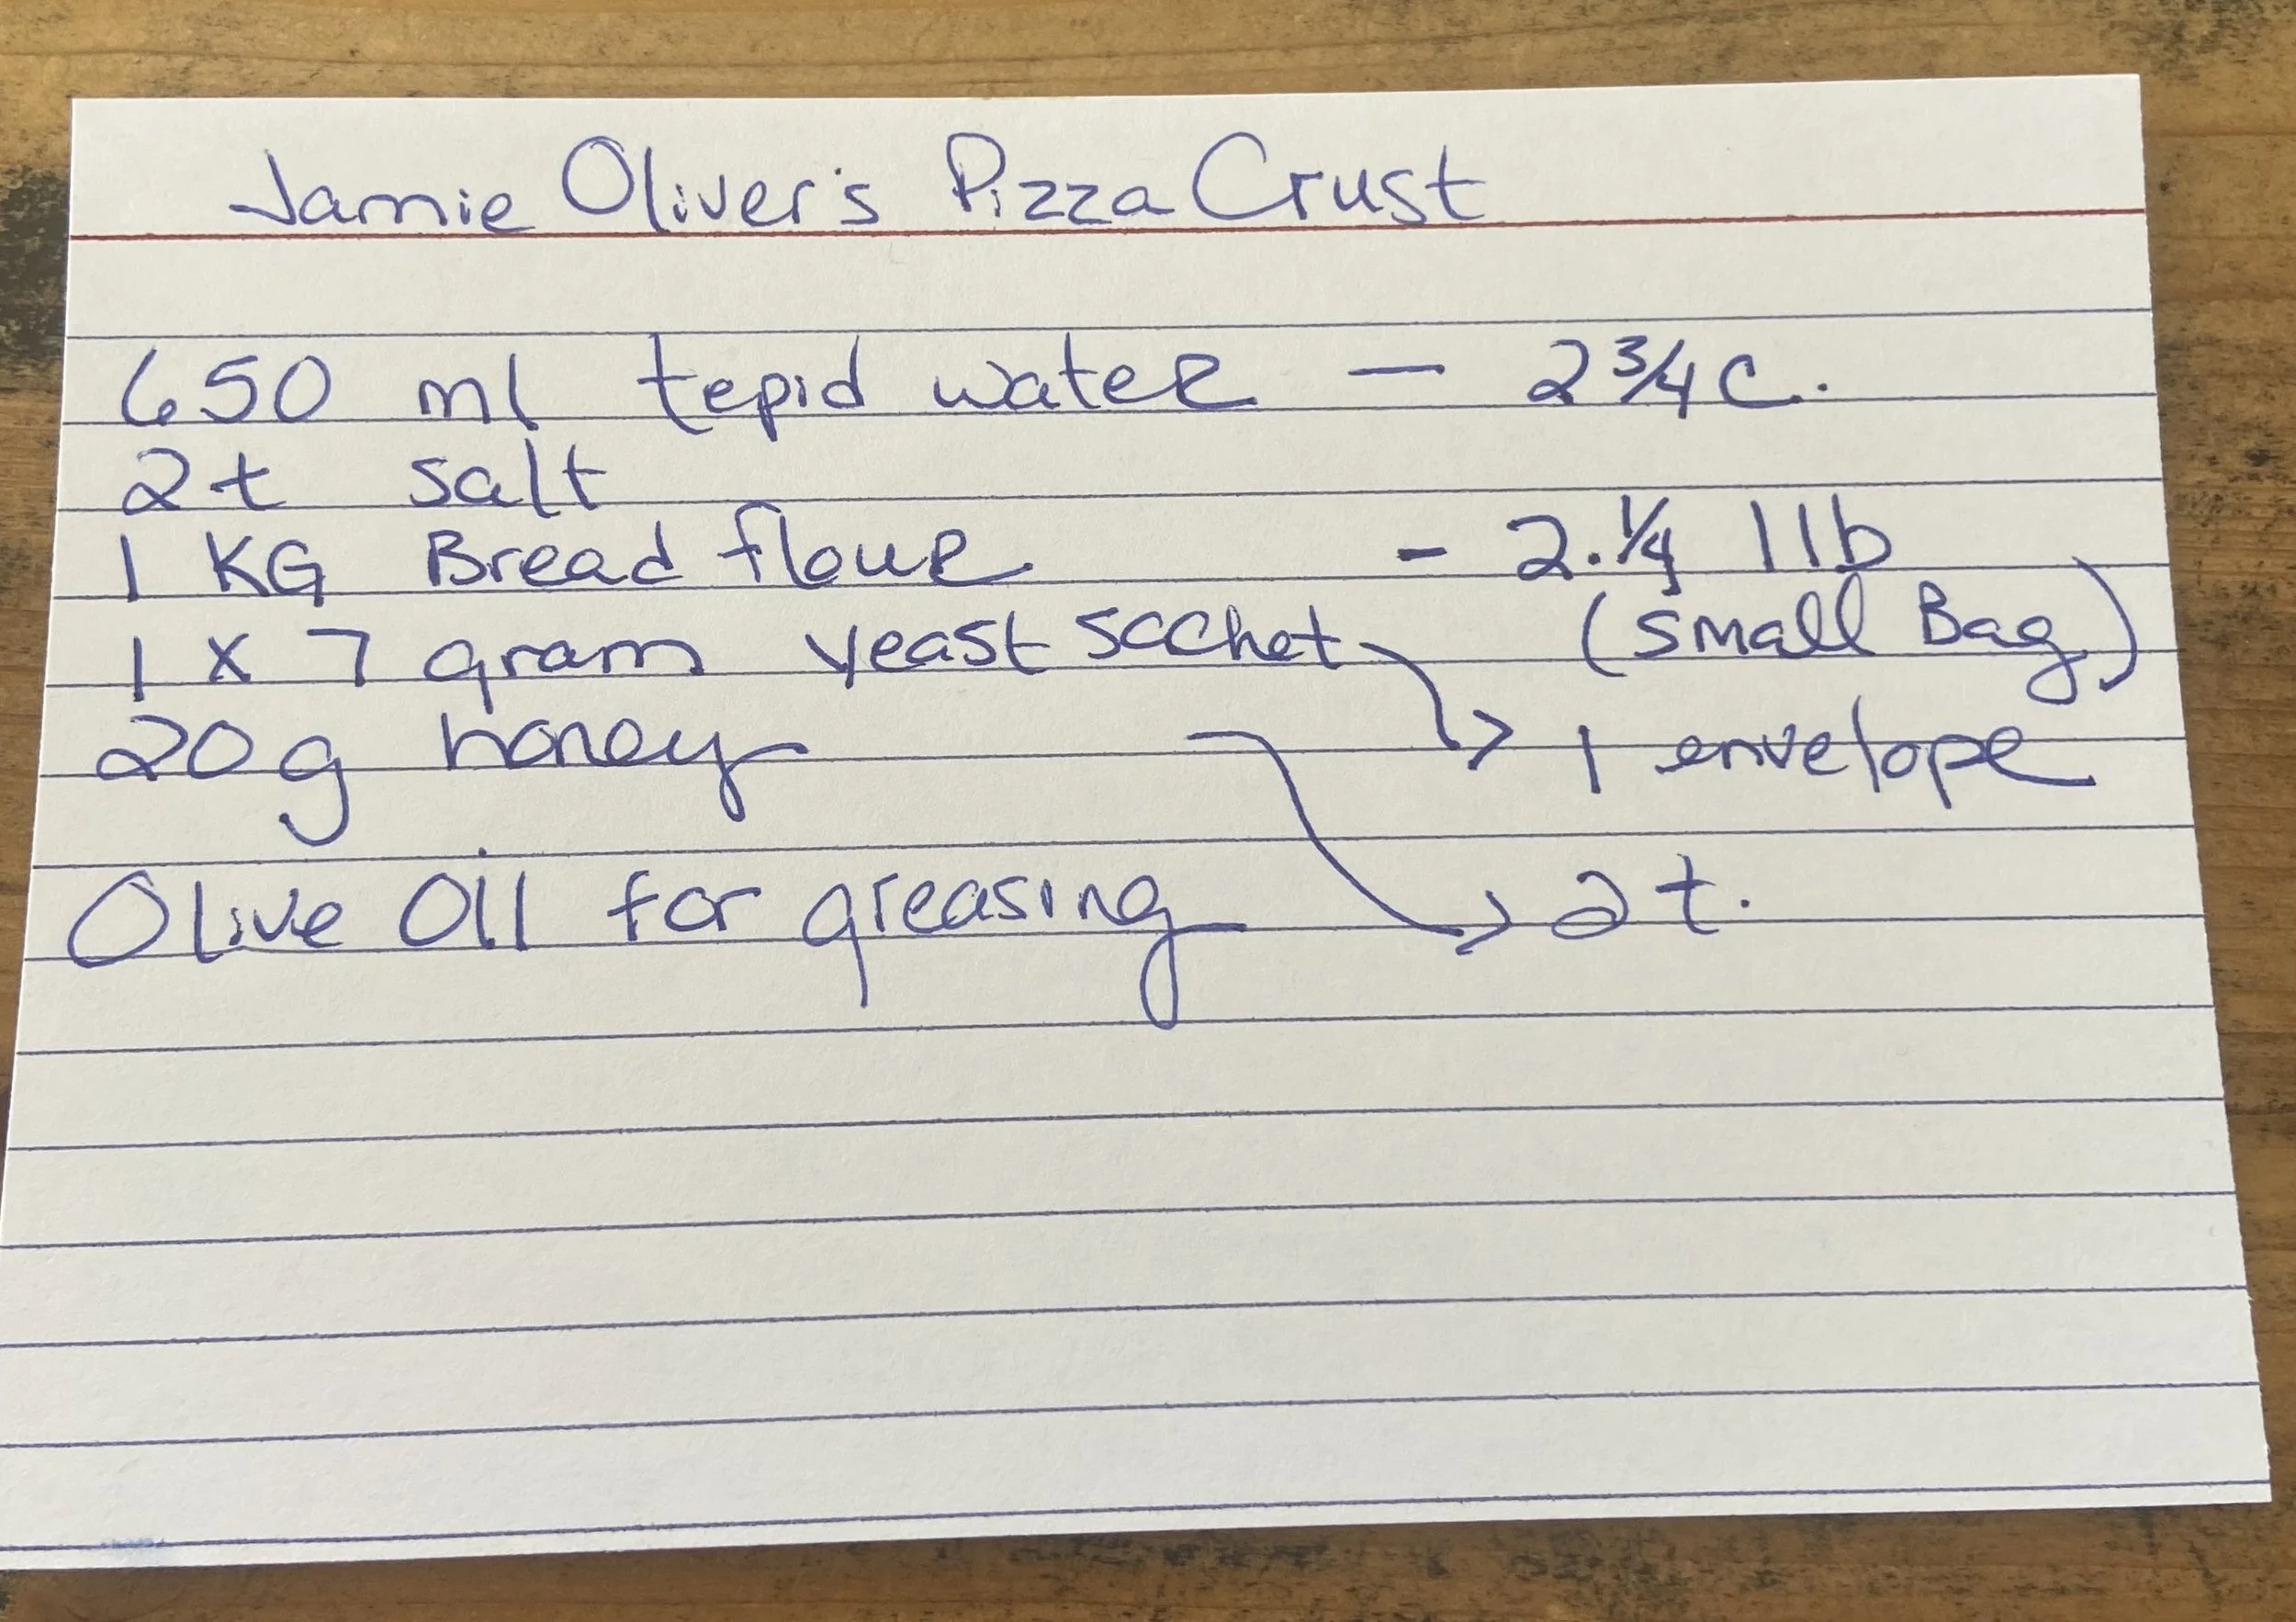 Jamie Oliver's Pizza Crust
650 ml tepid water — 2 3/4 C.
2t salt
1 KG Bread flour - 2.1/4 llb
(small Bag)
1 x 7 gram yeast sachet → 1 envelope
20g honey → 2t.
Olive Oil for greasing